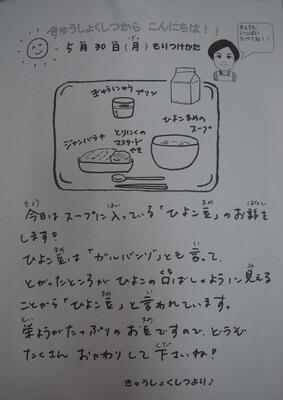 きゅうしょくしつから こんにちは!!
きょうも、
いっぱい
たべてね!!
5月30日(月)もりつけかた
ぎゅうにゅう
プリン
ひよこまめの
スープ
ジャンバラヤ
とりにくの
マスタード
やき
今日はスープに入っている「ひよこ豆」のお話を
します。
ひよこ豆は「ガルバンゾ」とも言って、
とがったところがひよこの口ばしのように見える
ことから「ひよこ豆」と言われています。
栄ようがたっぷりのお豆ですので、どうぞ
たくさん おかわりして下さいね♪
きゅうしょくしつより♪